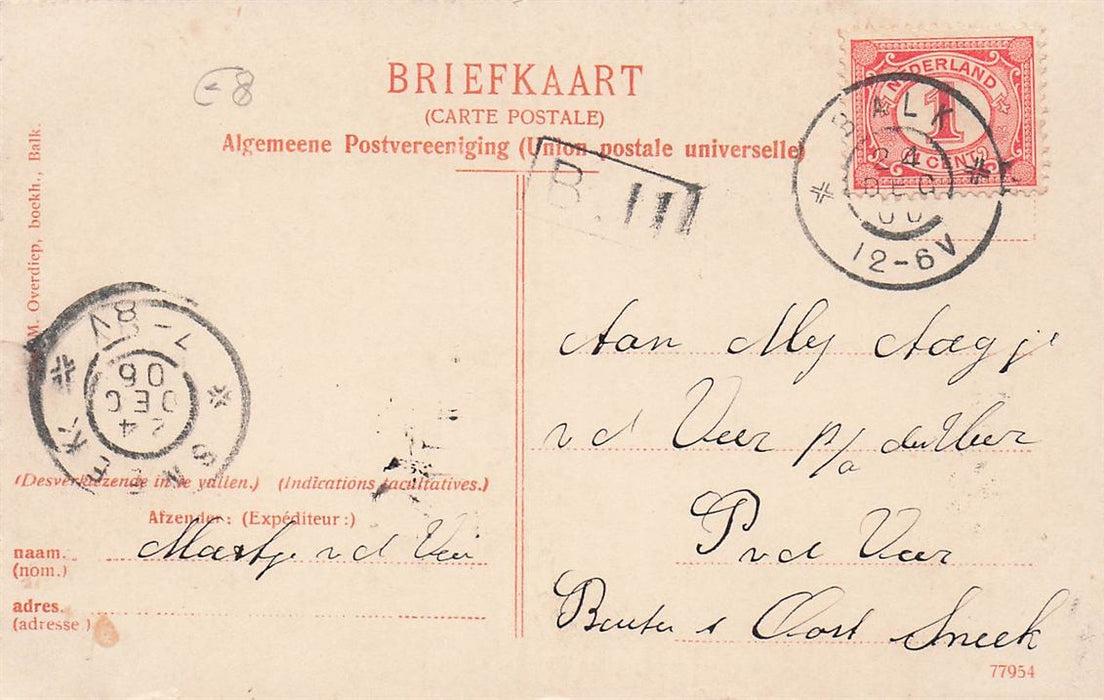 BRIEFKAART
(CARTE POSTALE)
Algemeene Postvereeniging (Union postale universelle)
NEDERLAND
1
CENT
BALK
24
DEC
12-6V
B. III
M. Overdiep, boekh., Balk.
7-8V
24
DEC
06
SNEEK
Aan Mej Aagje
v d Veer p/a den Heer
P v d Veer
Buiten Oost Sneek
(Desverkiezende in te vullen.) (Indications facultatives.)
Afzender: (Expéditeur:)
naam. Maatje v d Veer
(nom.)
adres.
(adresse)
77954